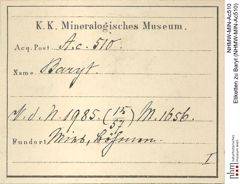 K. K. Mineralogisches Museum.
Acq. Post A.c. 510.
Name Baryt
N. d. N. 1985. (15/57) M. 1656.
Fundort Mies, Böhmen.
I
NHMW-MIN-Ac510
Etiketten zu Baryt (NHMW-MIN-Ac510)
nhm